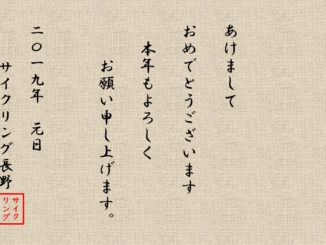 あけまして
おめでとうございます
本年もよろしく
お願い申し上げます。
二〇一九年 元日
サイクリング長野
サイク
リング